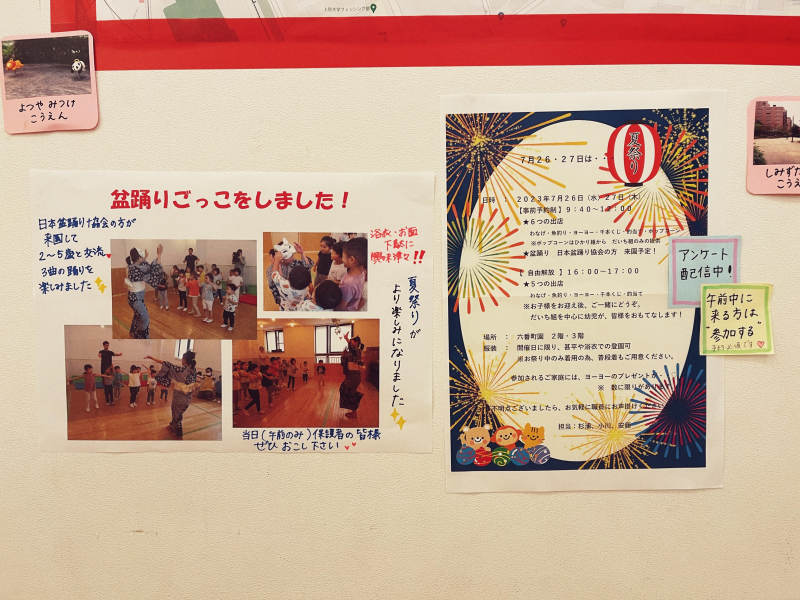 よつや みつけ
こうえん
盆踊りごっこをしました！
日本盆踊り協会の方が
来園して
2〜5歳と交流
3曲の踊りを
楽しみました
浴衣・お面
下駄に
興味津々!!
夏祭りが
より楽しみになりました
当日(午前のみ)保護者の皆様
ぜひ おこし下さい
夏祭り
7月26・27日は・・
日時 : 2023年7月26日(水)27日(木)
【事前予約制】9:40〜12:00
★6つの出店
わなげ・魚釣り・ヨーヨー・千本くじ・的当て・ポップコーン
※ポップコーンはひかり組から だいち組のみの提供
★盆踊り 日本盆踊り協会の方 来園予定！
【自由解放】16:00〜17:00
★5つの出店
わなげ・魚釣り・ヨーヨー・千本くじ・的当て
※お子様をお迎え後、ご一緒にどうぞ。
だいち組を中心に幼児が、皆様をおもてなします！
場所 : 六番町園 2階・3階
服装 : 開催日に限り、甚平や浴衣での登園可
※お祭り中のみ着用の為、普段着もご用意ください。
参加されるご家庭には、ヨーヨーのプレゼントが
※ 数に限りがあり
不明点ございましたら、お気軽に職員にお声掛けください
担当：杉浦、小川、安藤
アンケート
配信中！
午前中に
来る方は
"参加する"
しみずだ
こうえ